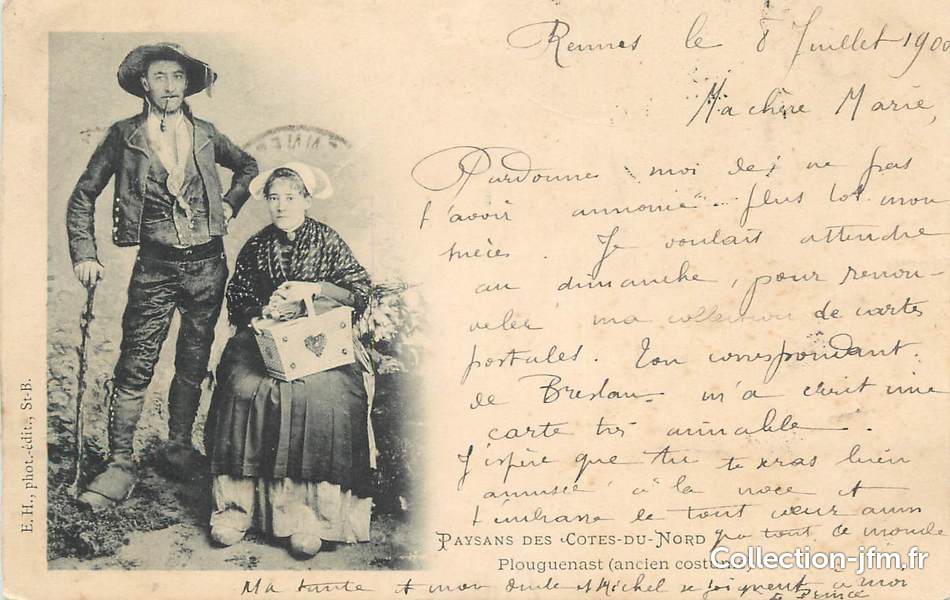 Rennes le 8 Juillet 1900
Ma chère Marie,
Pardonnes moi de ne pas
t'avoir annoncé plus tot mon
succès. Je voulais attendre
au dimanche, pour renou-
veler ma collection de cartes
postales. Ton correspondant
de Breslau m'a écrit une
carte très aimable.
J'espère que tu te seras bien
amusée à la noce et
t'embrasse de tout cœur ainsi
que tout ce monde
PAYSANS DES COTES-DU-NORD
Plouguenast (ancien costume)
Ma tante et mon oncle et Michel se joignent à moi
E. H., phot.-édit., St-B.
Collection-jfm.fr